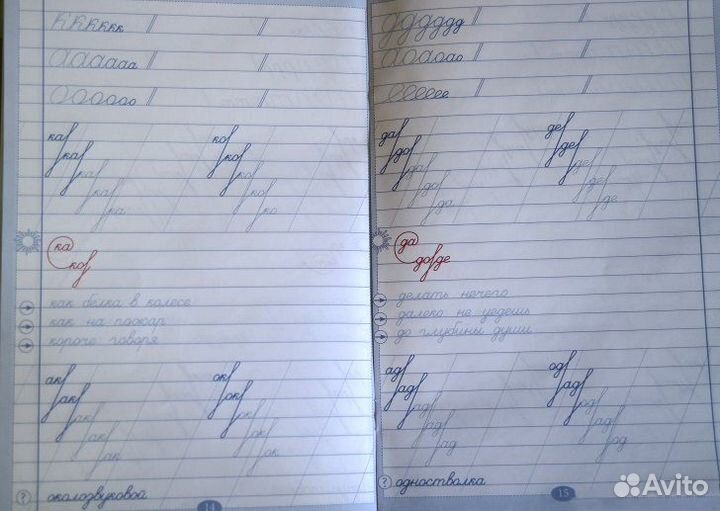 кккккк
аааааа
оооооо
ка ко
ка ко
ка ко
ка ко
ка ко
ка
ко
как белка в колесе
как на пожар
короче говоря
ак ок
ак ок
ак ок
ак ок
ак ок
околозвуковой
14
дддддд
аоаоао
ееееее
да де
до де
да де
до де
да де
да
до де
делать нечего
далеко не уедешь
до глубины души
ад од
ад ад
ад од
ад ад
ад од
одностволка
15
Avito